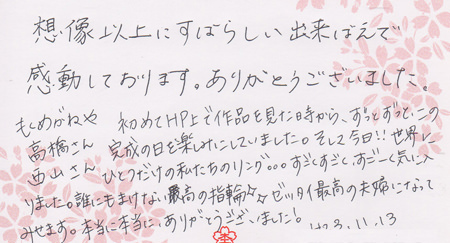 想像以上にすばらしい出来ばえで
感動しております。ありがとうございました。
もくめがねや 初めてHP上で作品を見た時から、ずっとずっと、この
高橋さん 完成の日を楽しみにしていました。そして今日!! 世界に
西山さん ひとつだけの私たちのリング。。。すごくすごく、すごーく気に入
りました。誰にもまけない最高の指輪☆☆ゼッタイ最高の夫婦になって
みせます。本当に本当に、ありがとうございました!
3.11.13